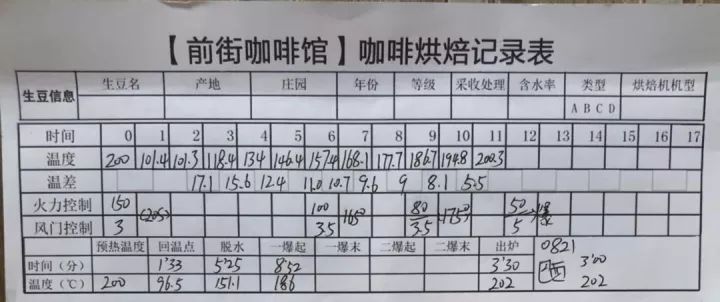 【前街咖啡馆】咖啡烘焙记录表
生豆信息 生豆名 产地 庄园 年份 等级 采收处理 含水率 类型 烘焙机机型
A B C D
时间 0 1 2 3 4 5 6 7 8 9 10 11 12 13 14 15 16 17
温度 200 101.4 101.3 118.4 134 146.4 157.4 168.1 177.7 186.7 194.8 200.3
温差 17.1 15.6 12.4 11.0 10.7 9.6 9 8.1 5.5
火力控制 150 100 80 50
(205) 165° 175°
风门控制 3 3.5 3.5 5
预热温度 回温点 脱水 一爆起 一爆末 二爆起 二爆末 出炉 0821
时间(分) 1'33 5'25 8'52 3'30 3'00
温度(℃) 200 96.5 151.1 186 202 202